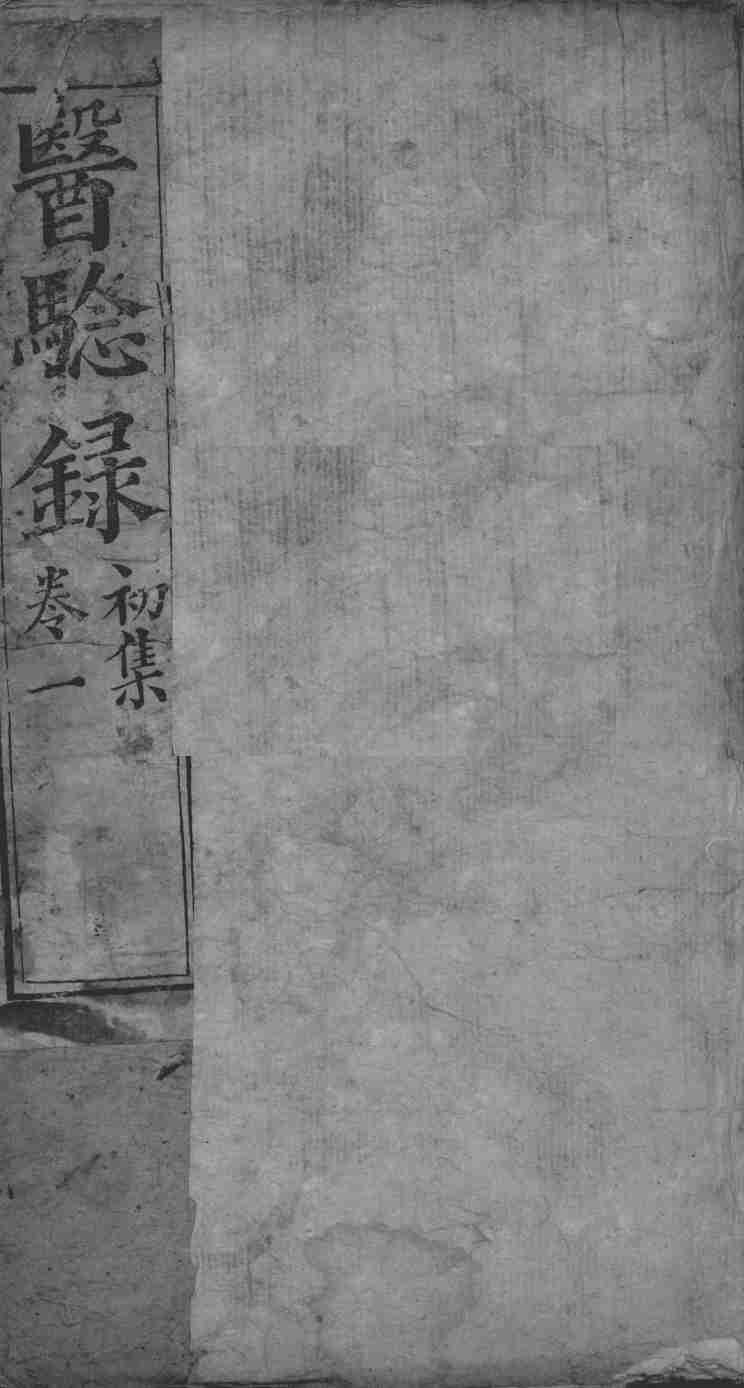 醫騐録
初集
卷一